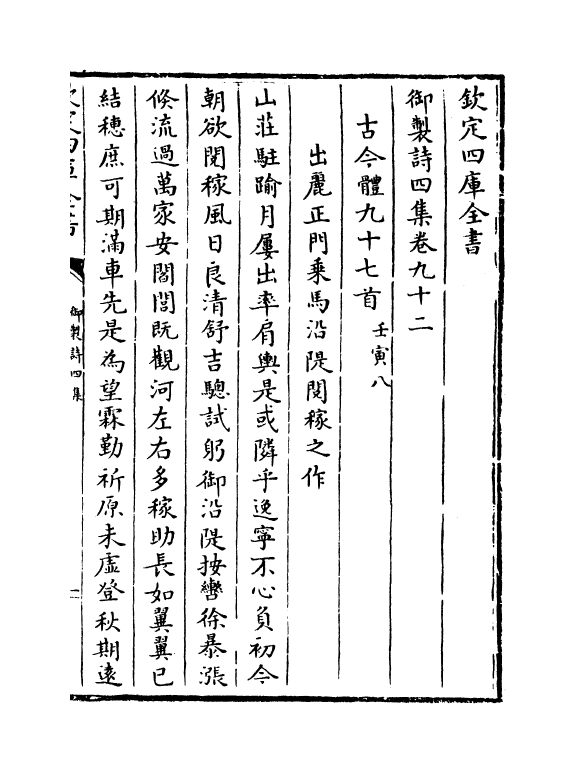 欽定四庫全書
御製詩四集卷九十二
古今體九十七首壬寅八
出麗正門乗馬沿隄閱稼之作
山莊駐踰月屢出率肩輿是或隣乎逸寧不心負初今
朝欲閱稼風日良清舒吉驄試躬御沿隄按轡徐暴漲
倐流過萬家安閭閻既觀河左右多稼助長如翼翼已
結穗庶可期滿車先是為望霖勤祈原未虛登秋期遠
御製詩四集